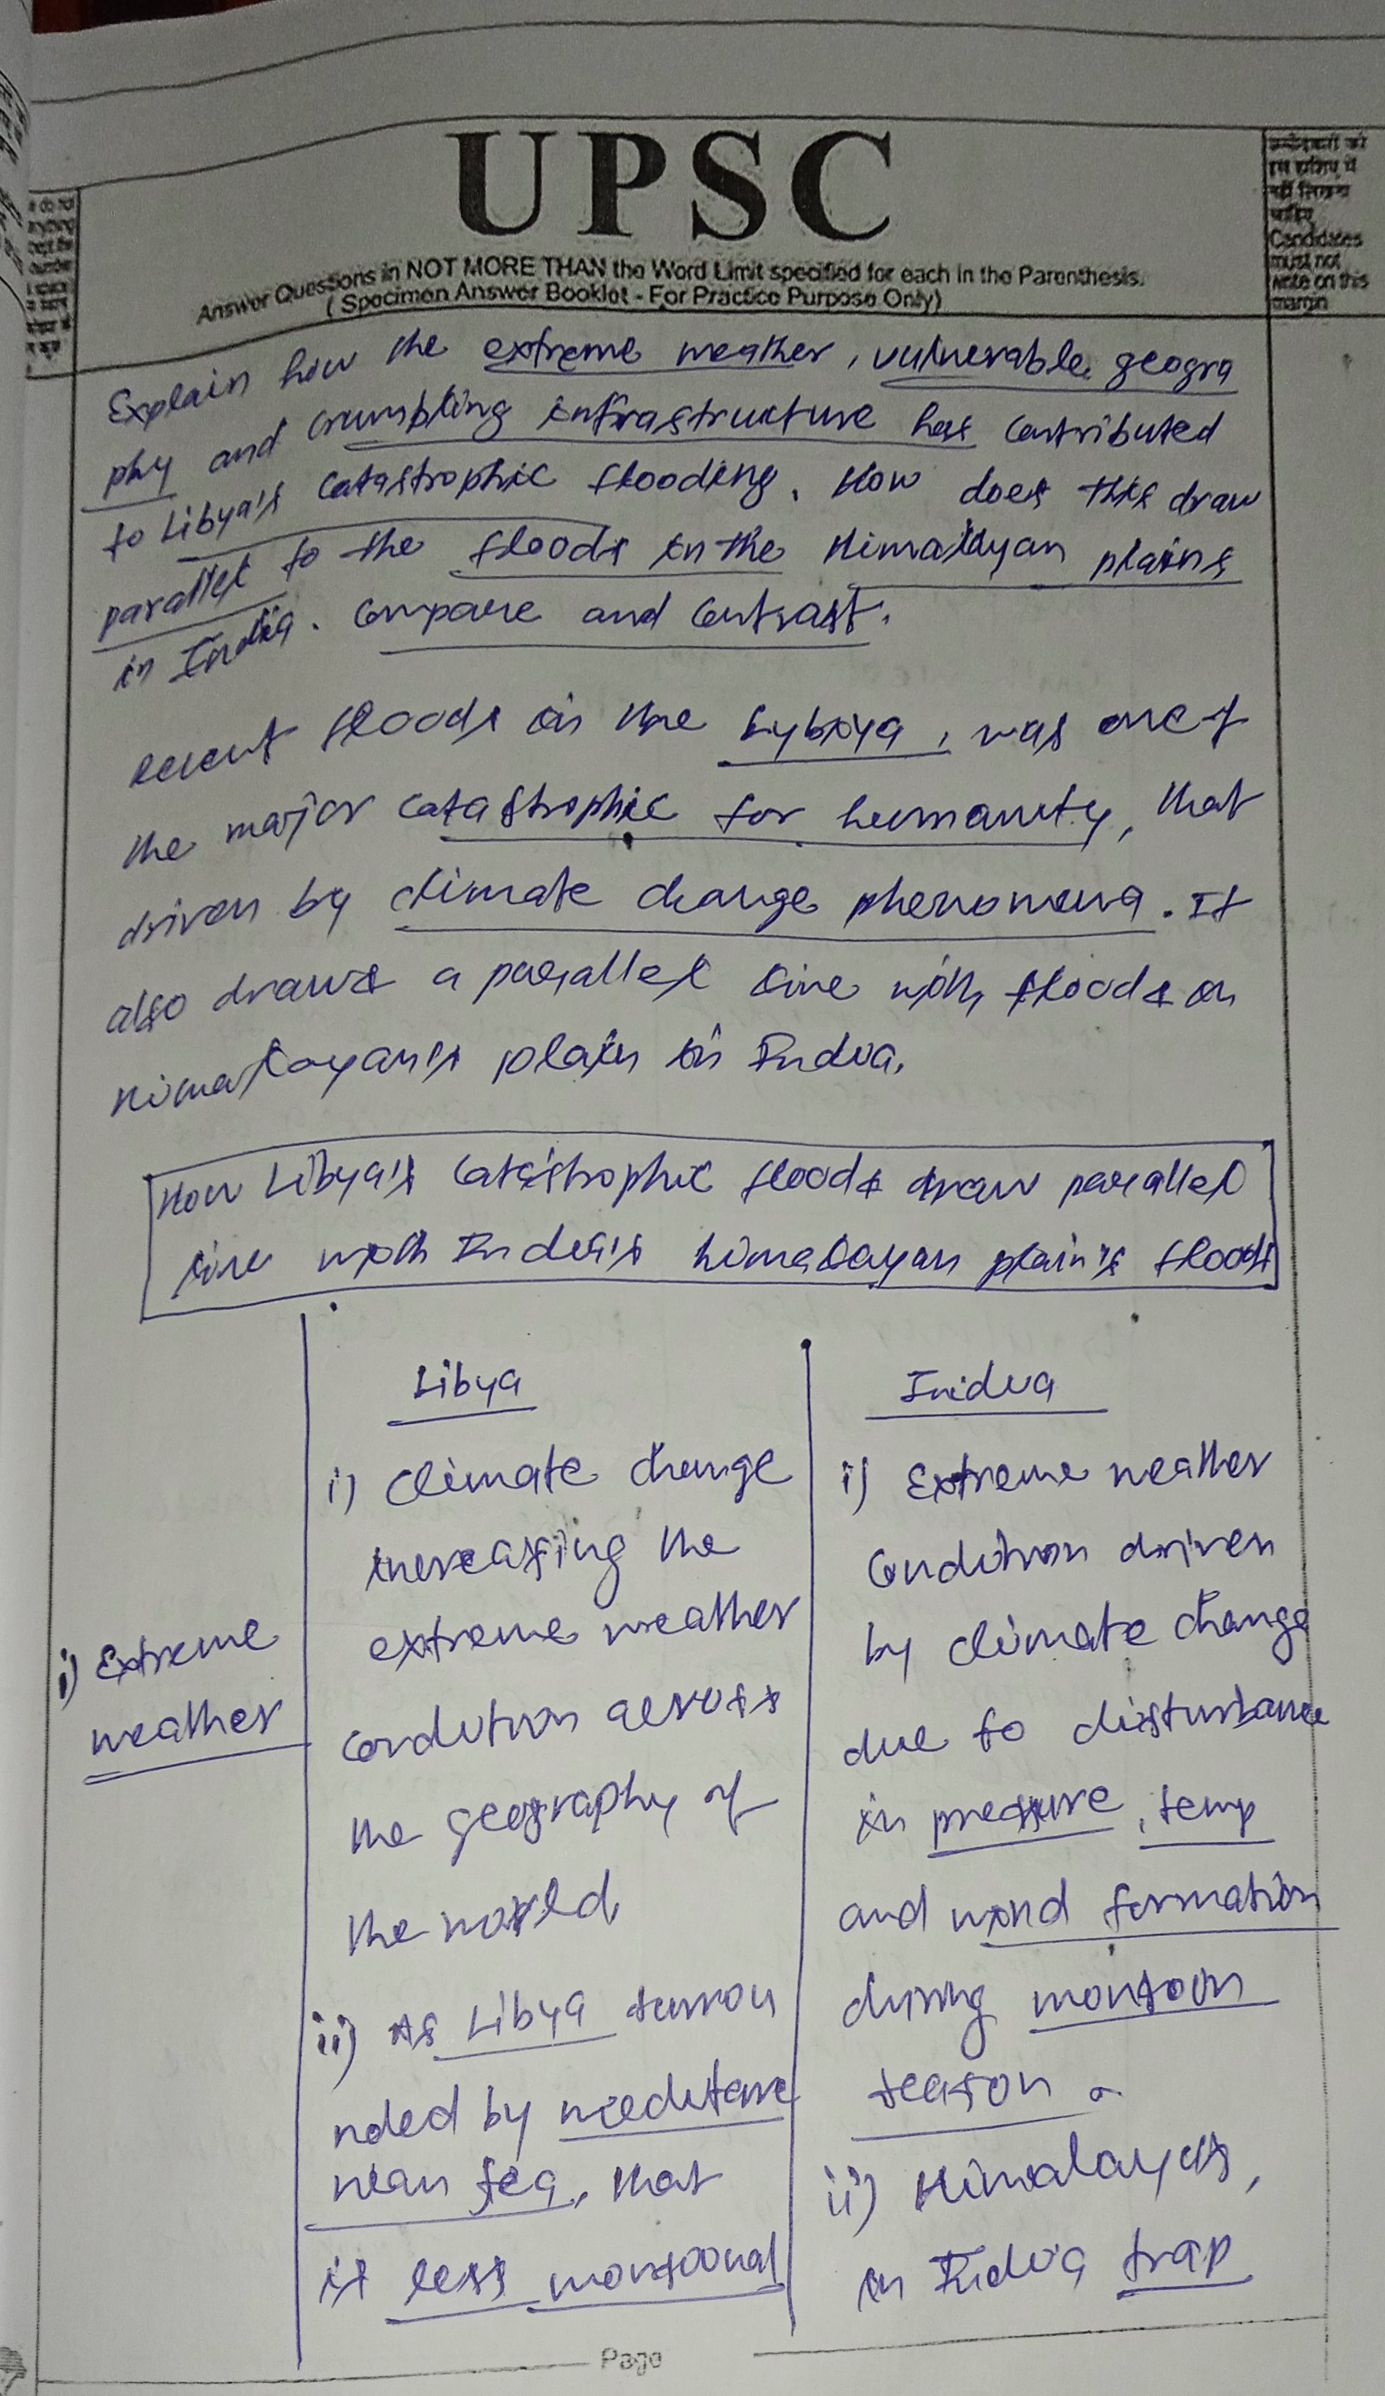 UPSC
Answer Questions in NOT MORE THAN the Word Limit specified for each in the Parenthesis.
( Specimen Answer Booklet - For Practice Purpose Only)
उम्मीदवारों को
इस हाशिए में
नहीं लिखना
चाहिए
Candidates
must not
write on this
margin
Explain how the extreme weather, vulnerable geogra
phy and crumbling infrastructure has contributed
to Libya's catastrophic flooding. How does this draw
parallel to the floods in the Himalayan plains
in India. Compare and Contrast.
recent floods in the Lybiya, was one of
the major catastrophic for humanity, that
driven by climate change phenomena. It
also draws a parallel line with floods in
Himalayan's plain in India.
How Libya's Catastrophic floods draw parallel
line with India's himalayan plain's floods
Libya
i) Climate change
increasing the
extreme weather
condition across
the geography of
the world
ii) As Libya surrou
nded by mediterra
nean sea, that
is less monsoonal
India
i) Extreme weather
condition driven
by climate change
due to disturbance
in pressure, temp
and wind formation
during monsoon
season.
ii) Himalayas,
in India trap
i) Extreme
weather
Page